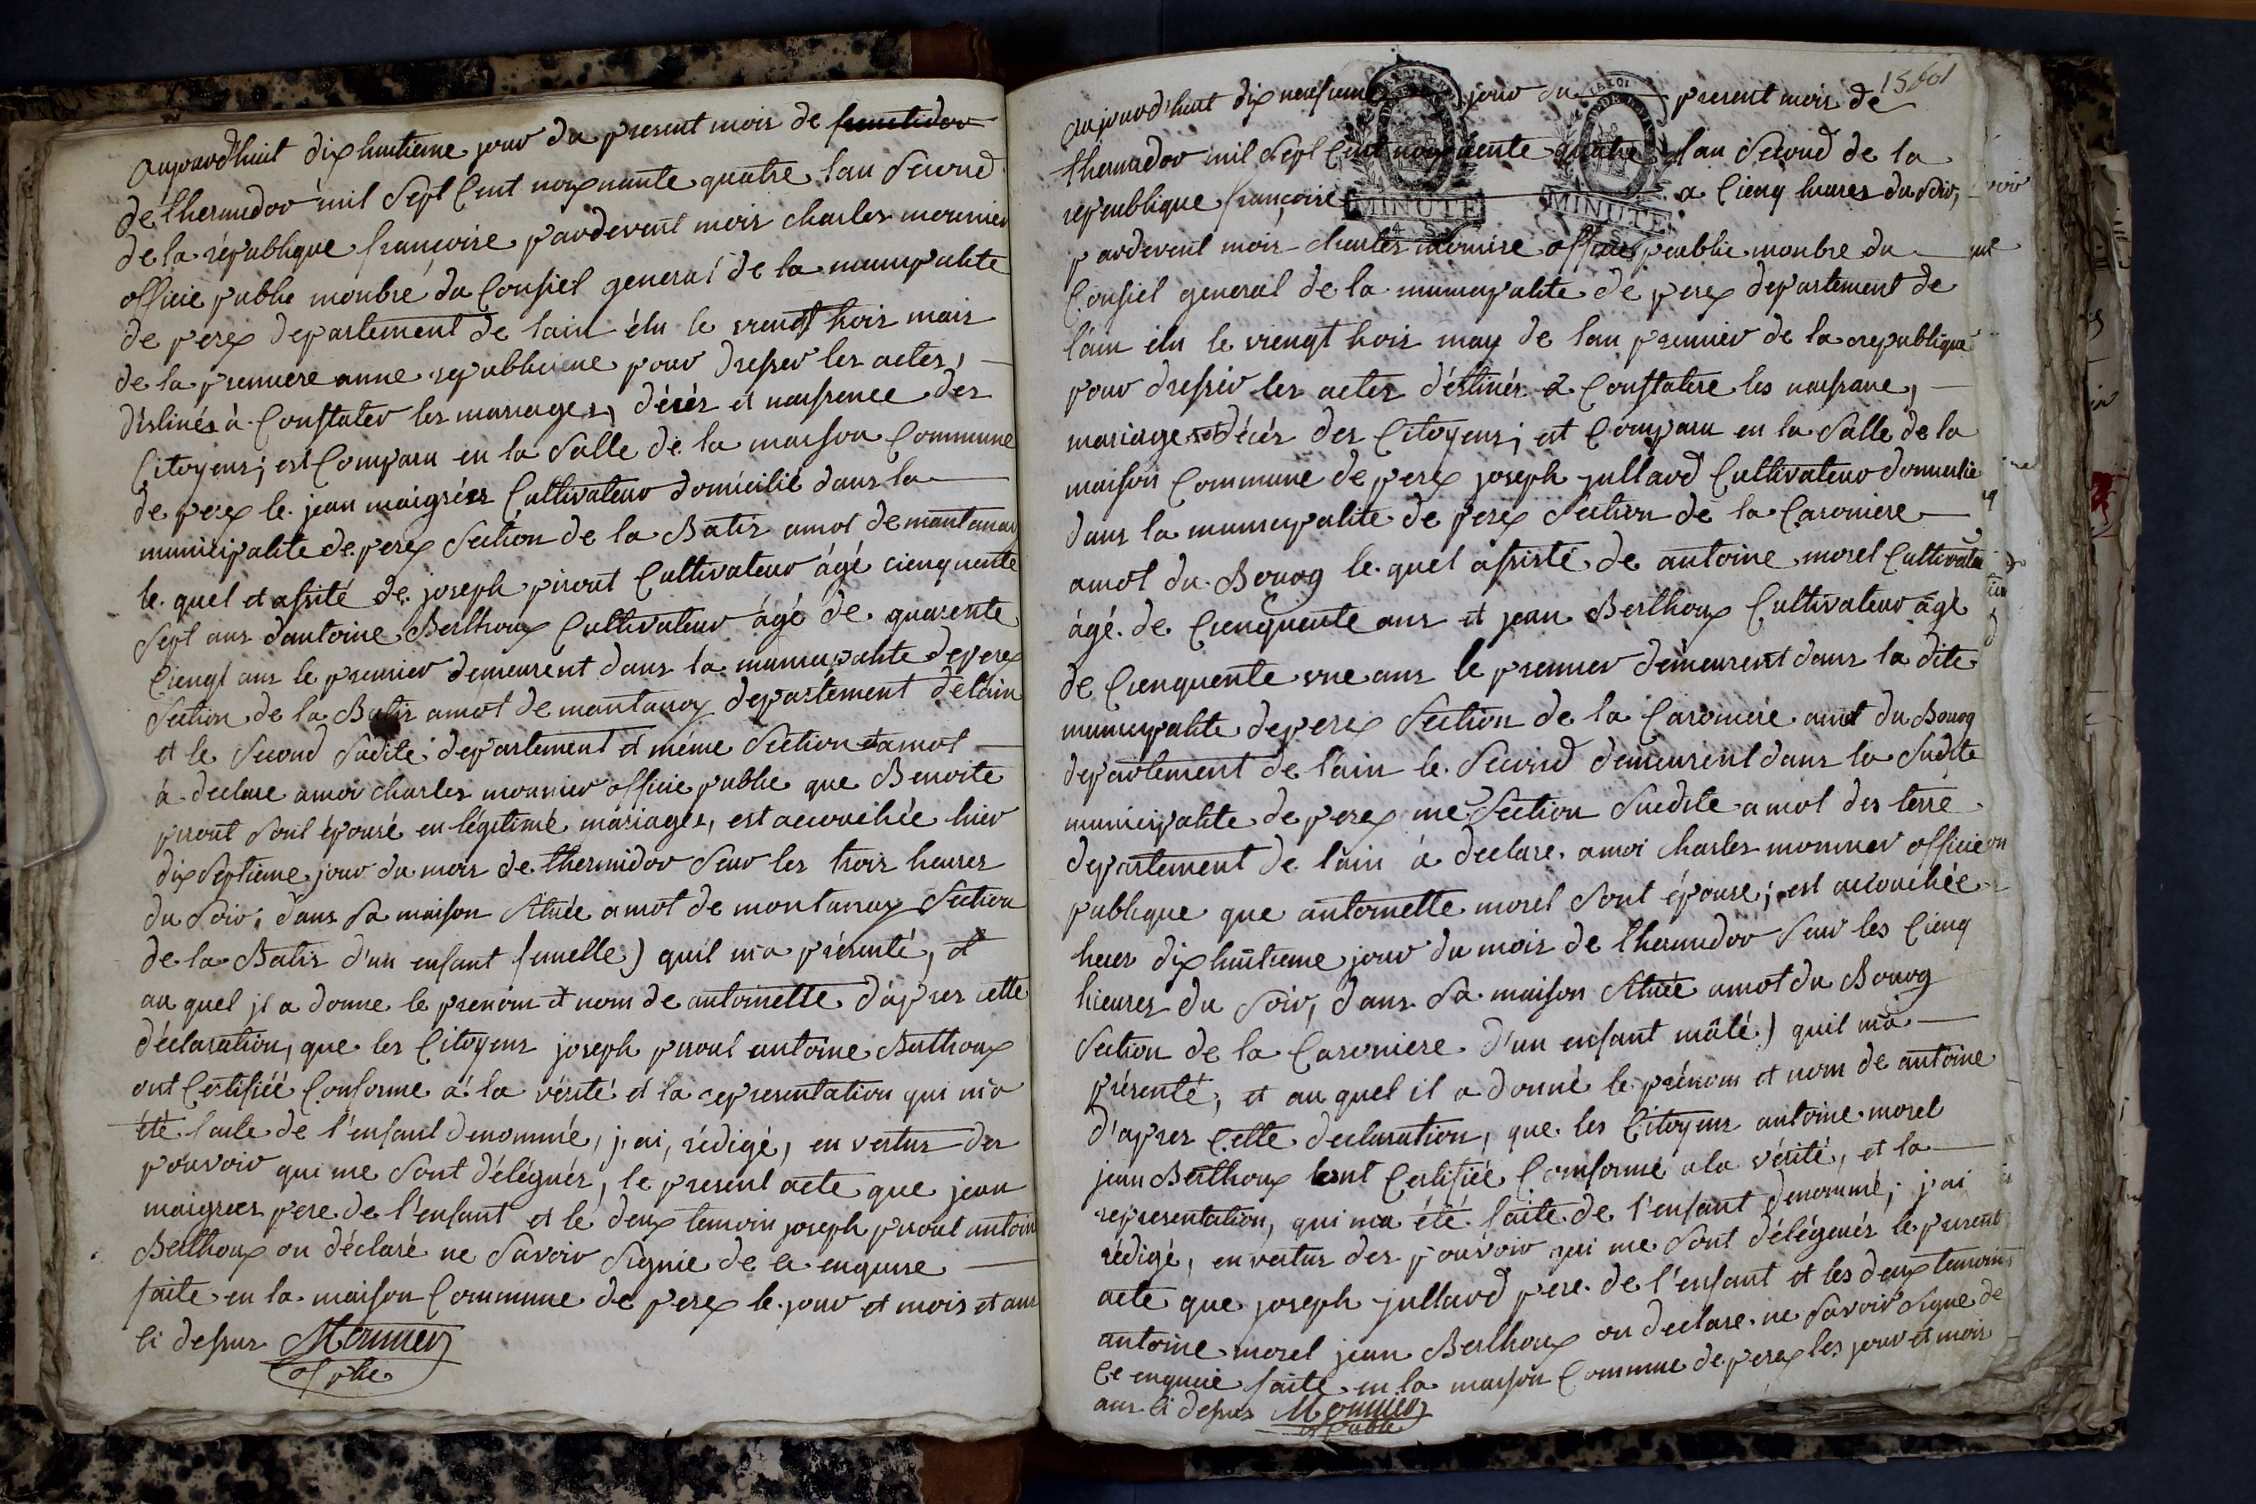 aujourd'huit dix huitieme jour du present mois de fructidor
de thermidor mil Sept Cent nonante quatre lan Second
de la république francoise pardevent mois charles mounier
officie publie monbre du Consiel general de la municipalite
de perex departement de lain élu le viengt trois mais
de la premiere anne republicaine pour dresser les actes,
déstinés à Constater les mariages, décés et naissence des
Citoyens; est Comparu en la Salle de la maison Commune
de perex le jean maigrées Cultivateur domicilié dans la
municipalite de perex Section de la Batis amot de montanay
le quel et assité de joseph pirout Cultivateur âgé cienquente
Sept ans dantoine Berthoux Cultivateur âgé de quarente
Ciengt ans le premier demeurent dans la municipalite de perex
Section de la Batis amot de montanay departement de lain
et le Second Sudite departement et méme Section et amot
à declare amoi charles mounier officie publie que Benoite
pirout Sont épouse en légitimé mariages, est accouchée hier
dix Septieme jour du mois de thermidor Seur les trois heures
du Soir, dans Sa maison Située amot de montanay Section
de la Batis d'un enfant femelle) quil ma présenté, et
au quel jl a donne le prenom et nom de antoinette d'apres cette
déclaration, que les Citoyens joseph pirout antoine Berthoux
ont Certifiéé Conforme à la vérité et la representation qui ma
été faite de l'enfant denommé, j'ai, rédigé, en vertus des
pouvoir qui me Sont délégués, le present acte que jean
maigrees pere de l'enfant et le deux temoin joseph pirout antoine
Berthoux on déclaré ne Savoir Signie de ce enquire
faite en la maison Commune de perex le jour et mois et ans
Ci dessus Mounier
of plie
15 fol
aujourd'huit dix neufieme jour du present mois de
thermidor mil Sept Cent nonante quatre lan Second de la
republique françoise a Cienq heures du Soir,
MINUTE
MINUTE
pardevent mois charles mounire officie publie monbre du
Consiel general de la municipalite de perex departement de
l'ain élu le viengt trois may de lan premier de la republique
pour dressér les actes déstinés a Constatere les naissane,
mariage et décés des Citoyens; est Comparu en la Salle de la
maison Commune de perex joseph jullard Cultivateur domicilie
dans la municipalite de perex Section de la Caroniere
amot du Bourg le quel assisté de antoine morel Cultivateur
âgé de Cienquente ans et jean Berthoux Cultivateur âgé
de Cienquente une ans le premier demeurent dans la dite
municipalite de perex Section de la Caroniere amot du Bourg
departement de l'ain le Second demeurent dans la Sudite
municipalite de perex me Section Suedite amot des terre
departement de l'ain à declare amoi charles mounier officie
publique que antoinette morel Sont épouse; est accouchée
hier dix huitieme jour du mois de thermidor Seur les Cienq
hieures du Soir, dans Sa maison Située amot du Bourg
Section de la Caroniere d'un enfant mâlé) quil ma
présenté, et au quel il a donné le prénom et nom de antoine
d'apres Cette declaration, que les Citoyens antoine morel
jean Berthoux ont Certifiéé Comforme a la vérité, et la
representation, qui ma été faite de l'enfant denommé; j'ai
rédigé, en vertus des pouvoir qui me Sont délégués le present
acte que joseph jullard pere de l'enfant et les deux temoins
antoine morel jean Berthoux on declare ne Savoir Signe de
Ce enqueie faite en la maison Commune de perex les jour et mois
ans Ci dessus Mounier
of Publie